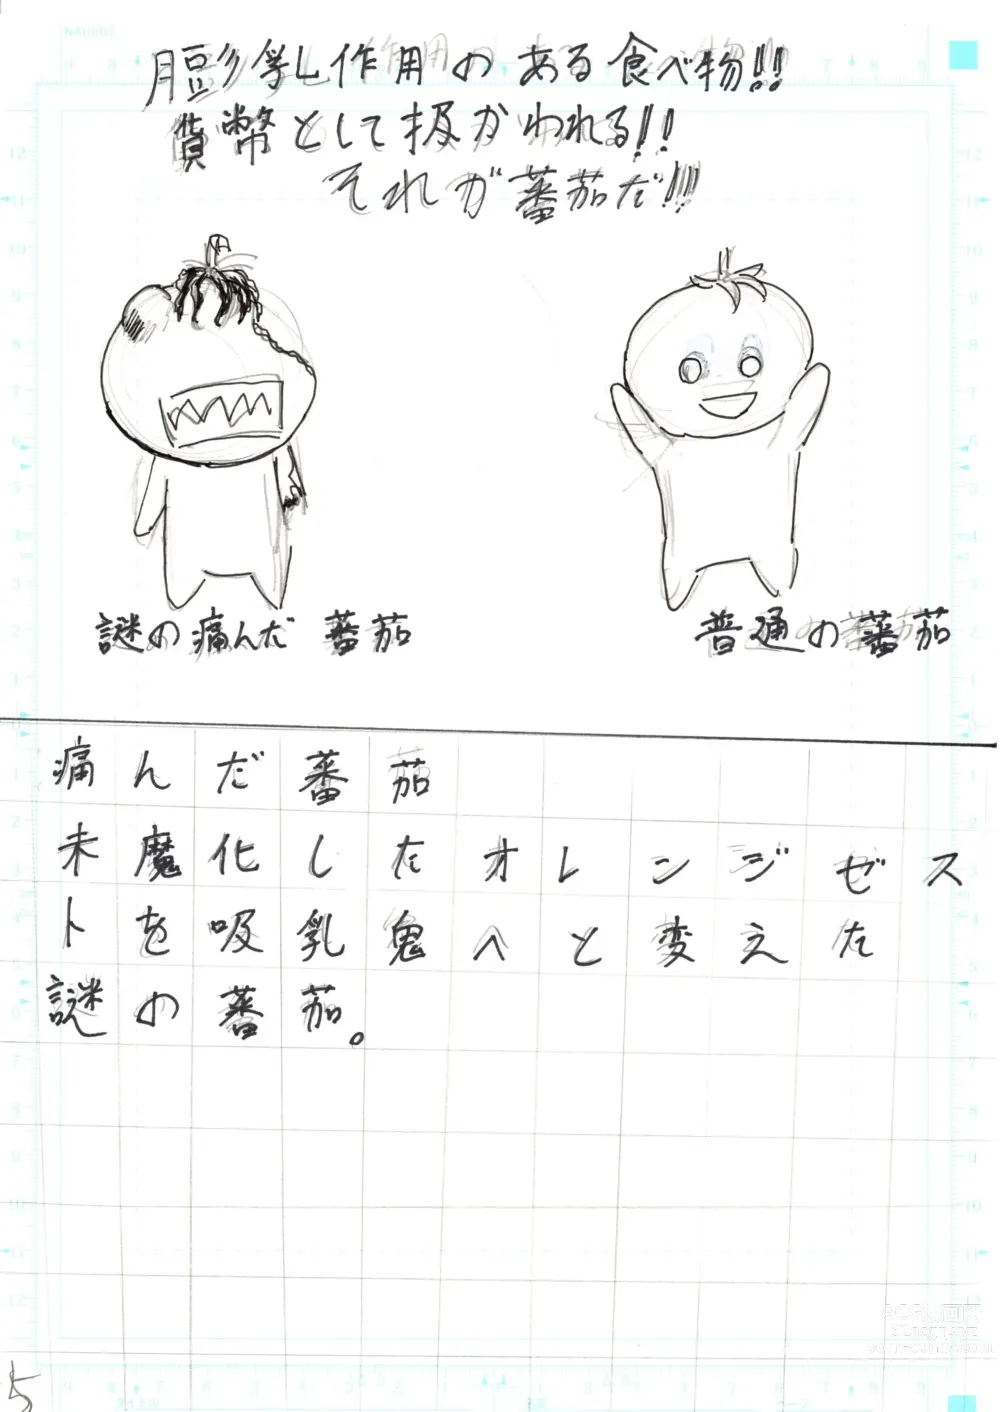 膨乳作用のある食べ物!!
貨幣として扱かわれる!!
それが蕃茄だ!!!
謎の痛んだ 蕃茄
普通の蕃茄
痛んだ蕃茄
未魔化したオレンジゼス
トを吸乳鬼へと変えた
謎の蕃茄。
5